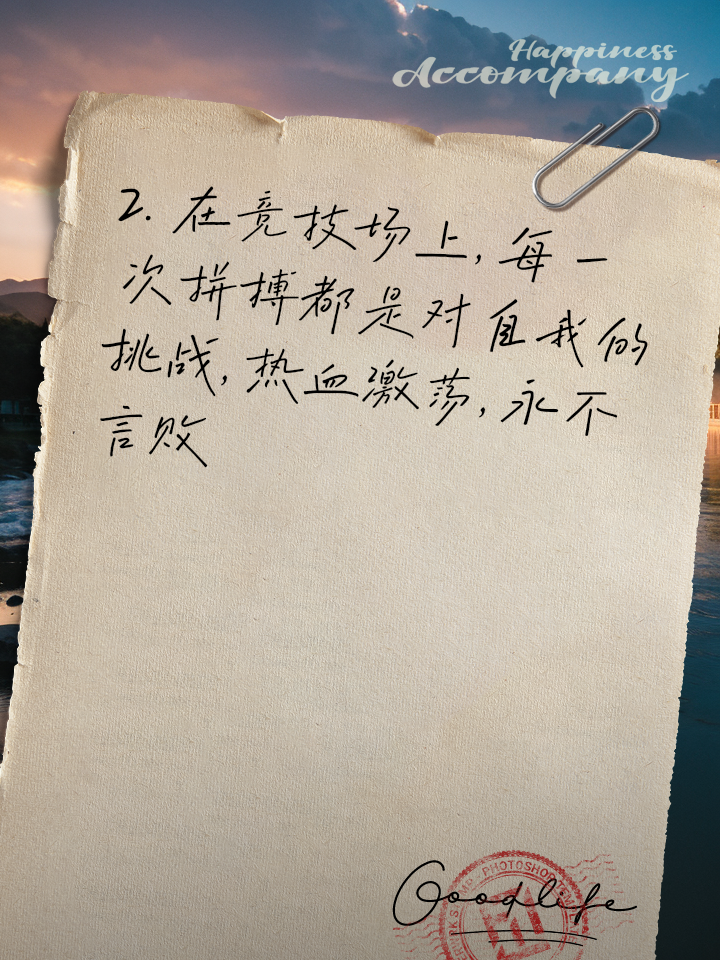 Happiness
Accompany
2. 在竞技场上, 每一
次拼搏都是对自我的
挑战, 热血激荡, 永不
言败
PHOTOSHOP
Goodlife